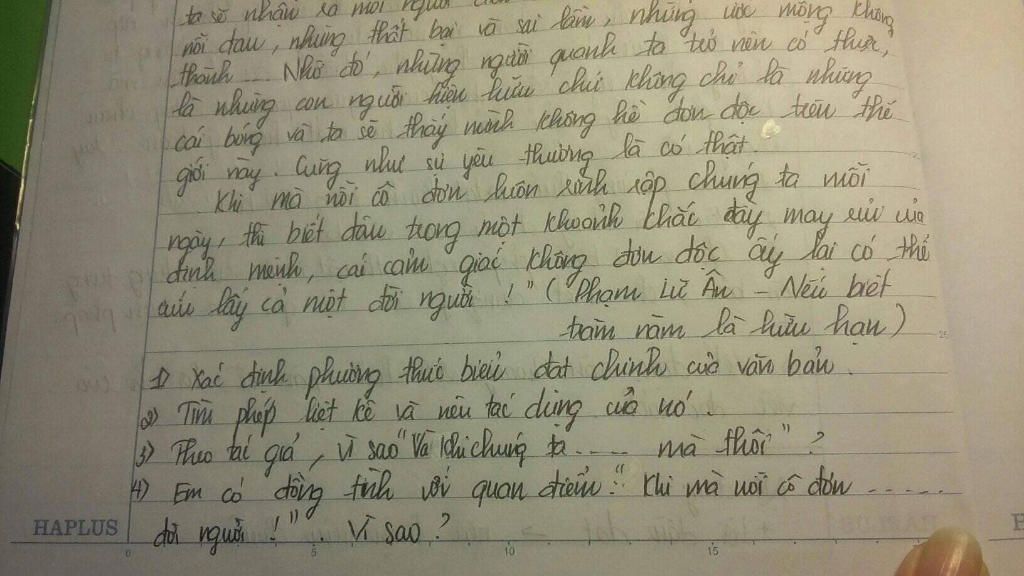 ta sẽ nhận ra mỗi người
nỗi đau, những thất bại và sai lầm, những ước mộng không
thành ... Nhờ đó, những người quanh ta trở nên có thực,
là những con người hiện hữu chứ không chỉ là những
cái bóng và ta sẽ thấy mình không hề đơn độc trên thế
giới này. Cũng như sự yêu thương là có thật.
Khi mà nỗi cô đơn luôn rình rập chúng ta mỗi
ngày, thì biết đâu trong một khoảnh khắc đầy may rủi của
định mệnh, cái cảm giác không đơn độc ấy lại có thể
cứu lấy cả một đời người !" (Phạm Lữ Ân - Nếu biết
trăm năm là hữu hạn)
1) Xác định phương thức biểu đạt chính của văn bản.
2) Tìm phép liệt kê và nêu tác dụng của nó.
3) Theo tác giả, vì sao "Và khi chúng ta .... mà thôi" ?
4) Em có đồng tình với quan điểm: "Khi mà nỗi cô đơn .....
đời người !" Vì sao ?
HAPLUS
0 5 10 15